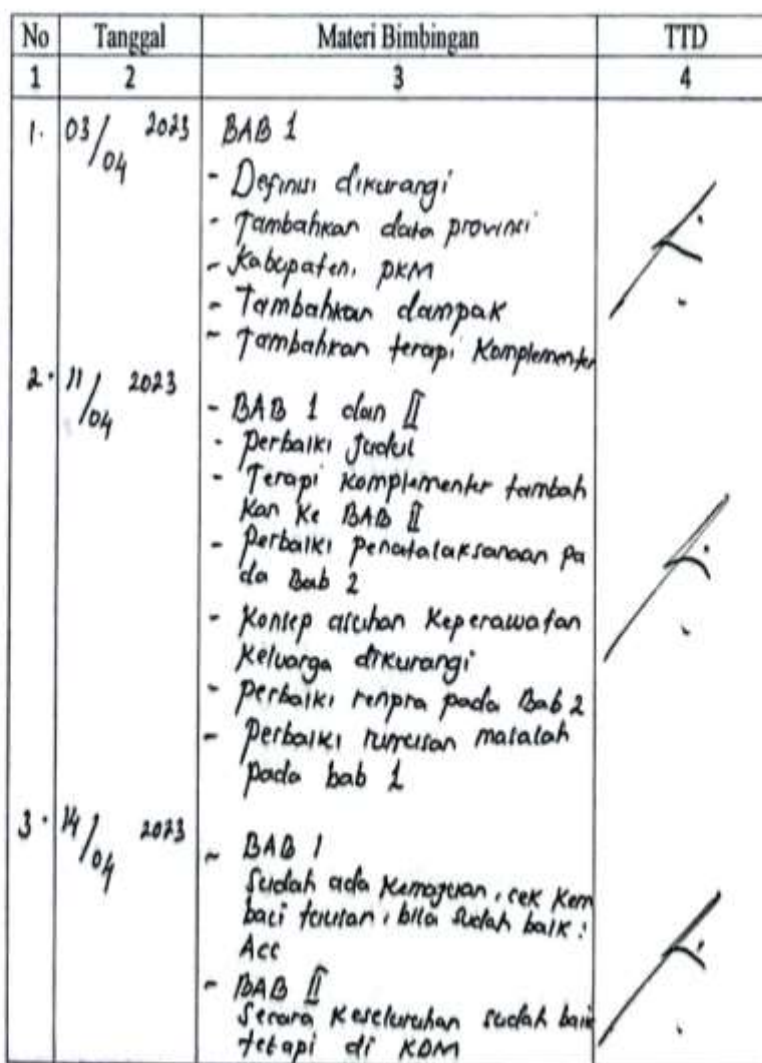 No Tanggal Materi Bimbingan TTD
1 2 3 4
1. 03/04 2023 BAB 1
- Definisi dikurangi
- Tambahkan data provinsi
- Kabupaten, PKM
- Tambahkan dampak
- Tambahkan terapi Komplementer
2. 11/04 2023
- BAB 1 dan II
- Perbaiki Judul
- Terapi Komplementer tambah
kan Ke BAB II
- Perbaiki penatalaksanaan pa
da Bab 2
- Konsep asuhan Keperawatan
Keluarga dikurangi
- Perbaiki renpra pada Bab 2
- Perbaiki rumusan masalah
pada bab 1
3. 14/04 2023
- BAB 1
Sudah ada Kemajuan, cek Kem
bali tulisan, bila sudah baik :
Acc
- BAB II
Secara Keseluruhan sudah baik
tetapi di KDM